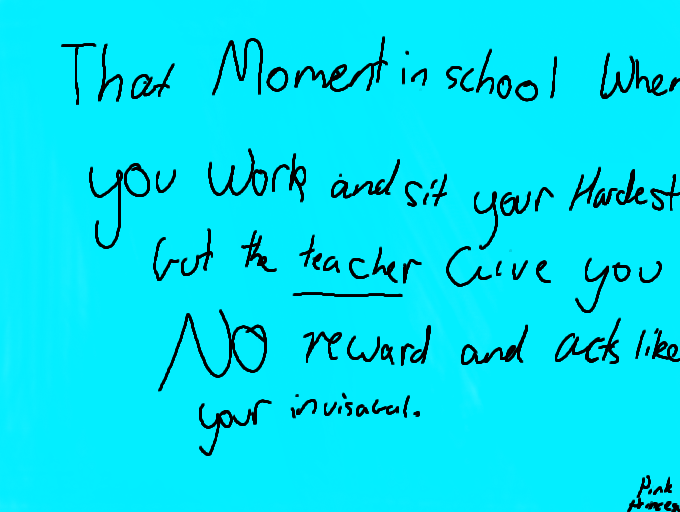 That Moment in school When
you Work and sit your Hardest
but the teacher Give you
NO reward and acts like
your invisabal.
Pink